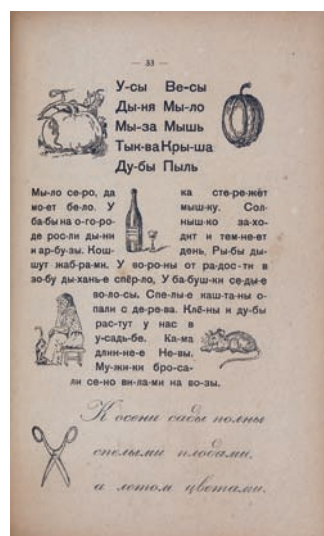 — 33 —
У-сы Ве-сы
Ды-ня Мы-ло
Мы-за Мышь
Тык-ва Кры-ша
Ду-бы Пыль
Мы-ло се-ро, да
мо-ет бе-ло. У
ба-бы на о-го-ро-
де рос-ли ды-ни
и ар-бу-зы. Кош-
ка сте-ре-жёт
мыш-ку. Сол-
ныш-ко за-хо-
дит и тем-не-ет
день. Ры-бы ды-
шут жаб-ра-ми. У во-ро-ны от ра-дос-ти в
зо-бу ды-ханье спёр-ло, У ба-буш-ки се-ды-е
во-ло-сы. Спе-лы-е каш-та-ны о-
пали с де-ре-ва. Клё-ны и ду-бы
рас-тут у нас в
у-садь-бе. Ка-ма
длин-не-е Не-вы.
Му-жи-ки бро-са-
ли се-но ви-ла-ми на во-зы.
К осени сады полны
спелыми плодами,
а летом цветами.